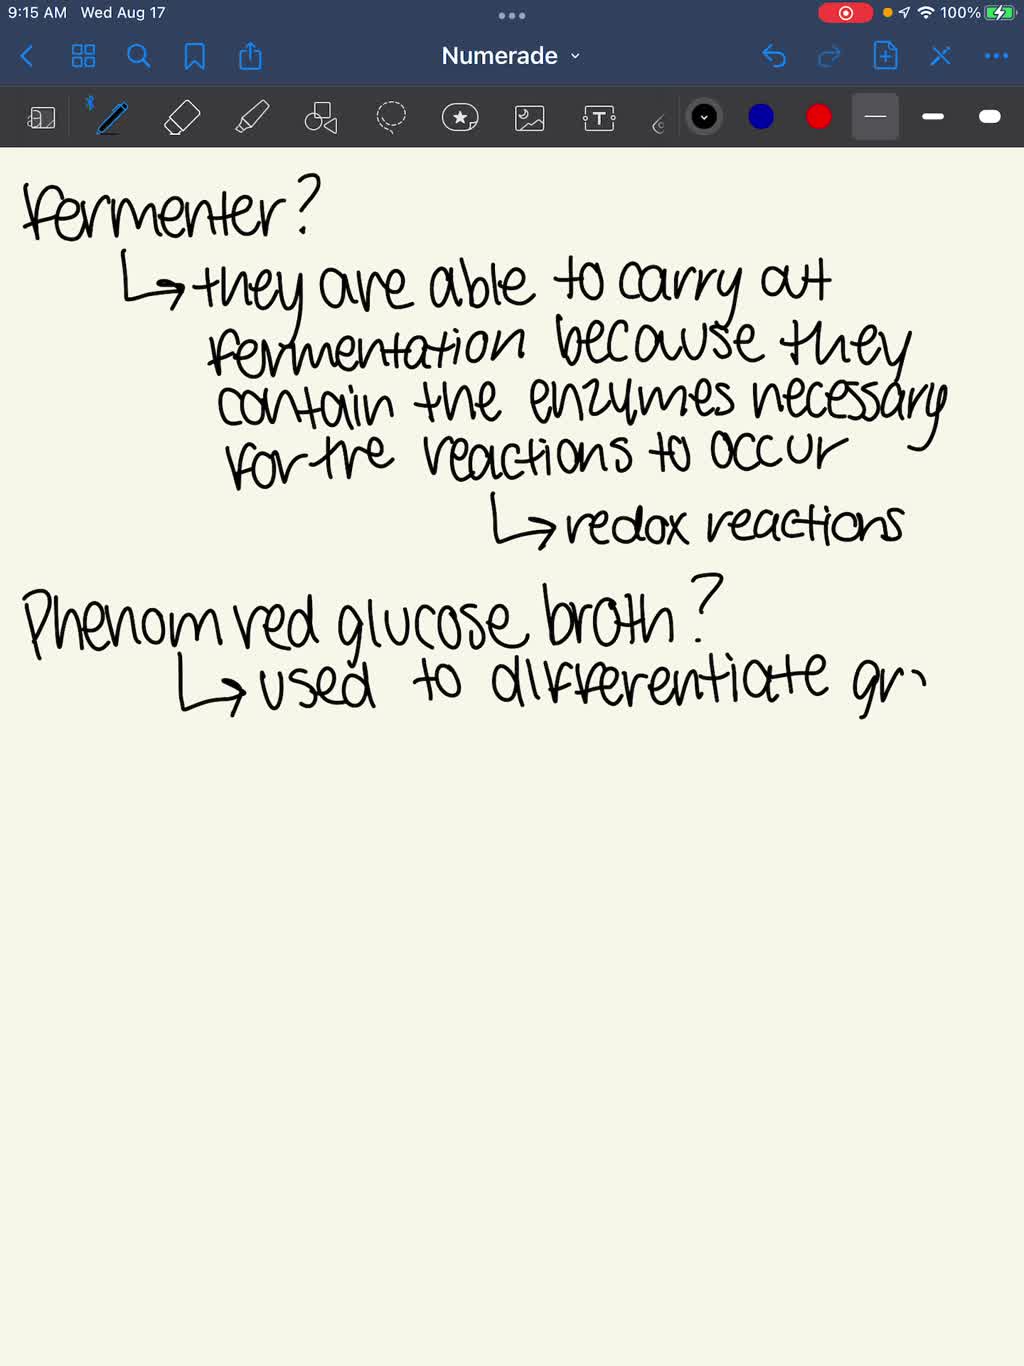 9:15 AM Wed Aug 17
100%
Numerade
T
fermenter?
they are able to carry out
fermentation because they
contain the enzymes necessary
for the reactions to occur
redox reactions
Phenom red glucose broth?
used to differentiate gr